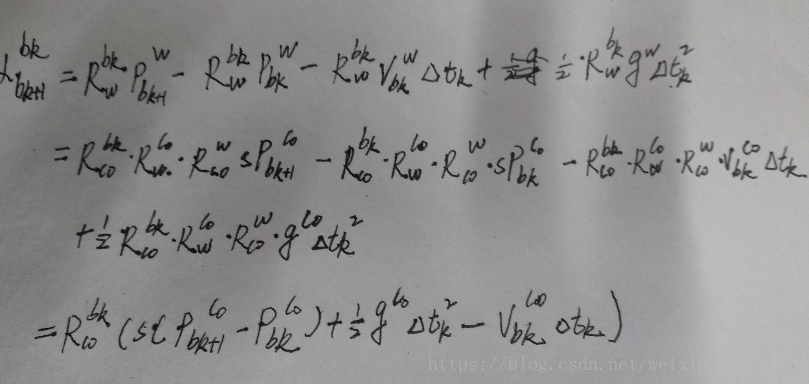 α_{bk+1}^{bk} = R_w^{bk} P_{bk+1}^w - R_w^{bk} P_{bk}^w - R_w^{bk} V_{bk}^w Δt_k + ½·R_w^{bk} g^w Δt_k^2
= R_{c0}^{bk}·R_w^{c0}·R_{c0}^w sP_{bk+1}^{c0} - R_{c0}^{bk}·R_w^{c0}·R_{c0}^w·sP_{bk}^{c0} - R_{c0}^{bk}·R_w^{c0}·R_{c0}^w·V_{bk}^{c0} Δt_k
+ ½ R_{c0}^{bk}·R_w^{c0}·R_{c0}^w·g^{c0} Δt_k^2
= R_{c0}^{bk} (s( P_{bk+1}^{c0} - P_{bk}^{c0} ) + ½ g^{c0} Δt_k^2 - V_{bk}^{c0} Δt_k )